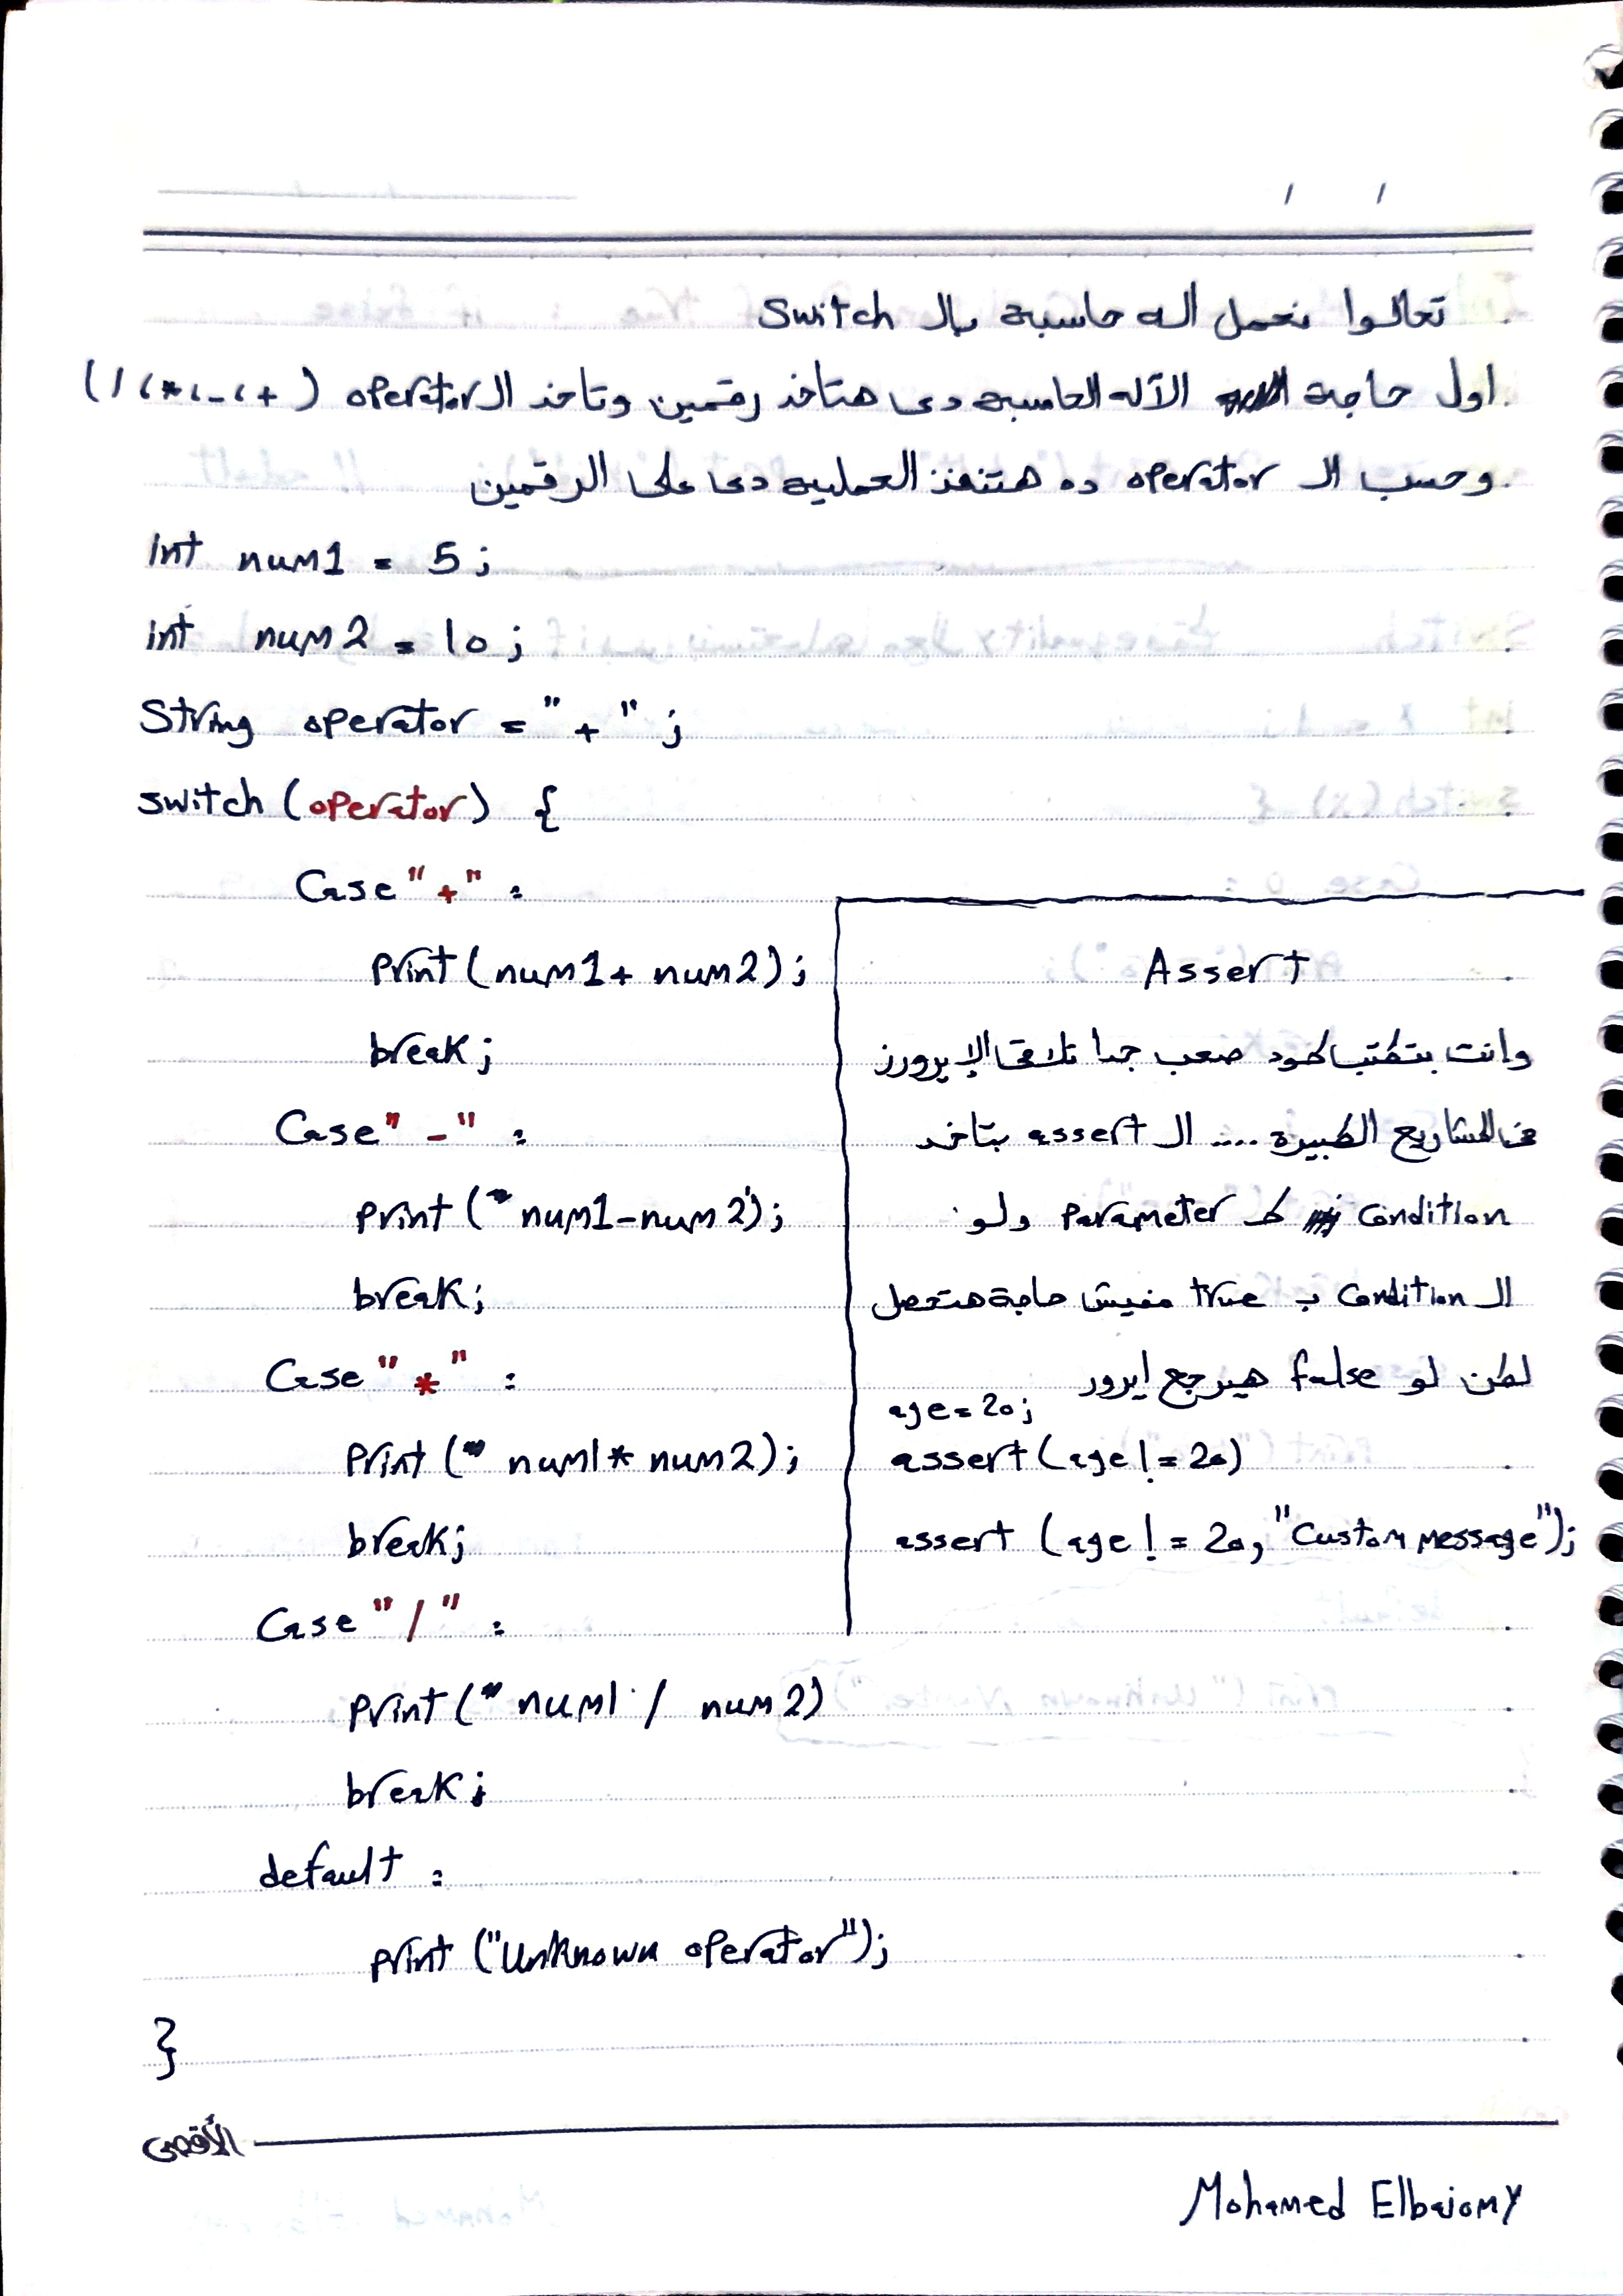 تعالوا نعمل اله حاسبة بال Switch
اول حاجة الآله الحاسبه دى هتاخد رقمين وتاخد ال operator ( + ، - ، * ، / )
وحسب ال operator ده هتنفذ العمليه دى على الرقمين
int num1 = 5 ;
int num2 = 10 ;
String operator = " + " ;
switch (operator) {
Case " + " :
print (num1 + num2) ;
break ;
Case " - " :
print ( num1 - num2 ) ;
break ;
Case " * " :
print ( num1 * num2 ) ;
break ;
Case " / " :
print ( num1 / num2 )
break ;
default :
print ("Unknown operator") ;
}
Assert
وانت بتكتب كود صعب جدا تلاقى الإيرورز
فى المشاريع الكبيره .... ال assert بتاخد
Condition ك Parameter ولو
ال Condition ب true مفيش حاجة هتحصل
لكن لو false هيرجع ايرور
age = 20 ;
assert (age != 20)
assert (age != 20, "Custom message") ;
الأقصى
Mohamed Elbaiomy